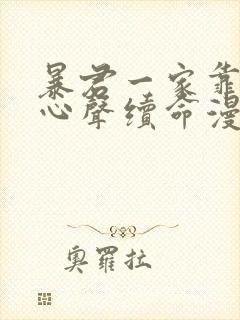 暴君一家靠
心聲續命漫
奧羅拉